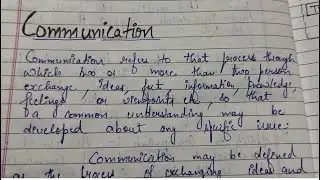 Communication
Communication refers to that process through
which two or more than two person
exchange, ideas, fut information, knowledge,
feelings or viewpoints etc, so that
a common understanding may be
developed about any specific issue:
Communication may be defined
as the process of exchanging ideas and